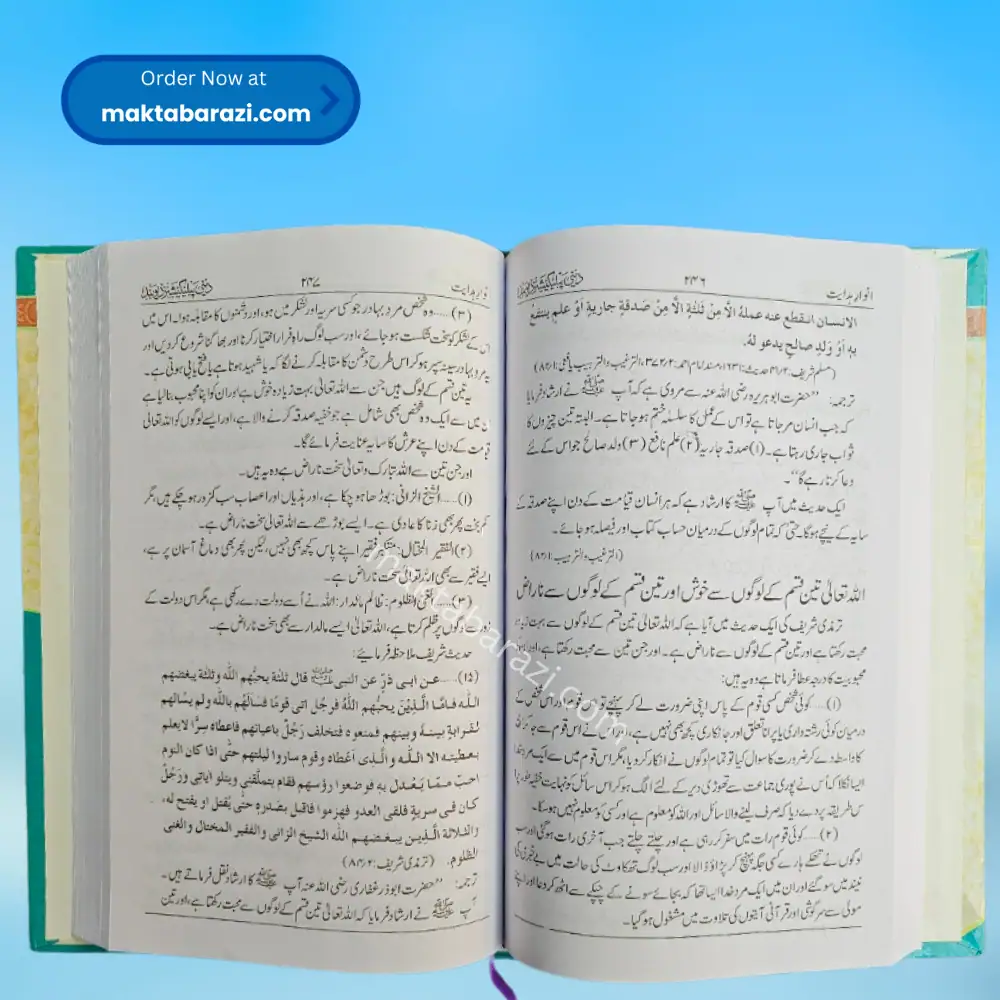 Order Now at
maktabarazi.com
انوار ہدایت
۲۴۶
الانسان انقطع عنه عملهُ الاَّ مِنْ ثلٰثَةٍ الَّا مِنْ صَدقةٍ جاريةٍ أوْ علمٍ ينتفع
بهٖ أوْ وَلدٍ صالحٍ يدعو لهُ.
(مسلم شریف ۲/۴۱ حدیث: ۱۶۳۱، مسند امام احمد ۲/۳۷۲، الترغیب والترہیب یافعی: ۸۲۱)
ترجمہ: ’’حضرت ابو ہریرہ رضی اللہ عنہ سے مروی ہے کہ آپ ﷺ نے ارشاد فرمایا
کہ جب انسان مرجاتا ہے تو اس کے عمل کا سلسلہ ختم ہو جاتا ہے۔ البتہ تین چیزوں کا
ثواب جاری رہتا ہے۔ (۱) صدقہ جاریہ (۲) علم نافع (۳) ولد صالح جو اس کے لئے
دعا کرتا رہے گا‘‘۔
ایک حدیث میں آپ ﷺ کا ارشاد ہے کہ ہر انسان قیامت کے دن اپنے صدقہ کے
سایہ کے نیچے ہوگا حتیٰ کہ تمام لوگوں کے درمیان حساب کتاب اور فیصلہ ہو جائے۔
(الترغیب والترہیب: ۸۲۱)
اللہ تعالیٰ تین قسم کے لوگوں سے خوش اور تین قسم کے لوگوں سے ناراض
ترمذی شریف کی ایک حدیث میں آیا ہے کہ اللہ تعالیٰ تین قسم کے لوگوں سے بہت زیادہ
محبت رکھتا ہے اور تین قسم کے لوگوں سے ناراض ہے۔ اور جن تین سے محبت رکھتا ہے، اور
محبوبیت کا درجہ عطا فرماتا ہے وہ یہ ہیں:
(۱)..... کوئی شخص کسی قوم کے پاس اپنی ضرورت لے کر پہنچے تو قوم اور اس شخص کے
درمیان کوئی رشتہ داری یا پرانا تعلق اور جانکاری کچھ بھی نہیں ہے، اور اس نے اس قوم سے جا کر اللہ
کا واسطہ دے کر ضرورت کا سوال کیا تو تمام لوگوں نے انکار کر دیا، مگر اس قوم میں سے ایک مرد خدا
ایسا نکلا کہ اُس نے پوری جماعت سے تھوڑی دیر کے لئے الگ ہو کر اس سائل کو نہایت خفیہ
طریقہ پر دے دیا کہ صرف لینے والا سائل اور اللہ کو معلوم ہے اور کسی کو معلوم نہیں ہو سکا۔
(۲)..... کوئی قوم رات میں سفر کر رہی ہے اور چلتے چلتے جب آخری رات ہوگئی اور سب
لوگوں نے تھکے ہارے کسی جگہ پہنچ کر پڑاؤ ڈالا اور سب لوگ تھکاوٹ کی حالت میں بے خبری کی
نیند میں سو گئے اور ان میں ایک مرد خدا ایسا تھا کہ بجائے سونے کے چپکے سے اٹھ کر دعا اور اپنے
مولیٰ سے سرگوشی اور قرآنی آیتوں کی تلاوت میں مشغول ہو گیا۔
انوار ہدایت
۲۴۷
(۳)..... وہ شخص مرد بہادر جو کسی سریہ اور لشکر میں ہو، اور دشمنوں کا مقابلہ ہوا۔ اس میں
اس کے لشکر کو سخت شکست ہو جائے، اور سب لوگ راہِ فرار اختیار کرنا اور بھاگنا شروع کر دیں اور
یہ مرد بہادر سینہ سپر ہو کر اس طرح دشمن کا مقابلہ کرنے لگا کہ یا شہید ہوتا ہے یا فتح یابی ہوتی ہے۔
یہ تین قسم کے لوگ ہیں جن سے اللہ تعالیٰ بہت زیادہ خوش ہے اور ان کو اپنا محبوب بنا لیا ہے
ان میں سے ایک وہ شخص بھی شامل ہے جو خفیہ صدقہ کرنے والا ہے، اور ایسے لوگوں کو اللہ تعالیٰ
قیامت کے دن اپنے عرش کا سایہ عنایت فرمائے گا۔
اور جن تین سے اللہ تبارک و تعالیٰ سخت ناراض ہے وہ یہ ہیں۔
(۱)..... الشیخ الزانی: بوڑھا ہو چکا ہے، اور ہڈیاں اور اعصاب سب کمزور ہو چکے ہیں، مگر
کم بخت پھر بھی زنا کا عادی ہے۔ ایسے بوڑھے سے اللہ تعالیٰ سخت ناراض ہے۔
(۲) الفقیر المختال: متکبر فقیر اپنے پاس کچھ بھی نہیں، لیکن پھر بھی دماغ آسمان پر ہے،
ایسے فقیر سے بھی اللہ تعالیٰ سخت ناراض ہے۔
(۳)..... الغنی الظلوم: ظالم مالدار: اللہ نے اُسے دولت دے رکھی ہے، مگر اس دولت کے
لوگوں پر ظلم کرتا ہے، اللہ تعالیٰ ایسے مالدار سے بھی سخت ناراض ہے۔
حدیث شریف ملاحظہ فرمائیے:
(۱۵)..... عن ابی ذرّ عن النبی ﷺ قال ثلٰثة يحبُّهم اللّٰه وثلٰثة يبغضهم
اللّٰه فامَّا الَّذِيْنَ يحبُّهم اللّٰهُ فرجُل اتی قومًا فسَألَهُم باللّٰه ولم يسْالهم
لقرابةٍ بينهٗ وبينهم فمنعوه فتخلف رَجُلٌ باعيانهم فاعطاه سِرًّا لايعلم
بعطيته الا اللّٰه والَّذی اعْطاه وقوم ساروا ليلتهم حتّٰی اذا كان النوم
احبّ ممّا يُعْدَل بهٖ فوضعوا رؤسهم فقام يتملّقنی ويتلو اٰياتی ورَجُلٌ
كان فی سريةٍ فلقی العدو فهزموا فاقبل بصدرهٖ حتّٰی يُقتل او يفتح له،
والثلاثة الَّذين يبغضهم اللّٰه الشيخ الزانی والفقير المختال والغنی
الظلوم. (ترمذی شریف: ۲/۸۴)
ترجمہ: ’’حضرت ابوذر غفاری رضی اللہ عنہ آپ ﷺ کا ارشاد نقل فرماتے ہیں۔
آپ ﷺ نے ارشاد فرمایا کہ اللہ تعالیٰ تین قسم کے لوگوں سے محبت رکھتا ہے، اور تین
maktabarazi.com